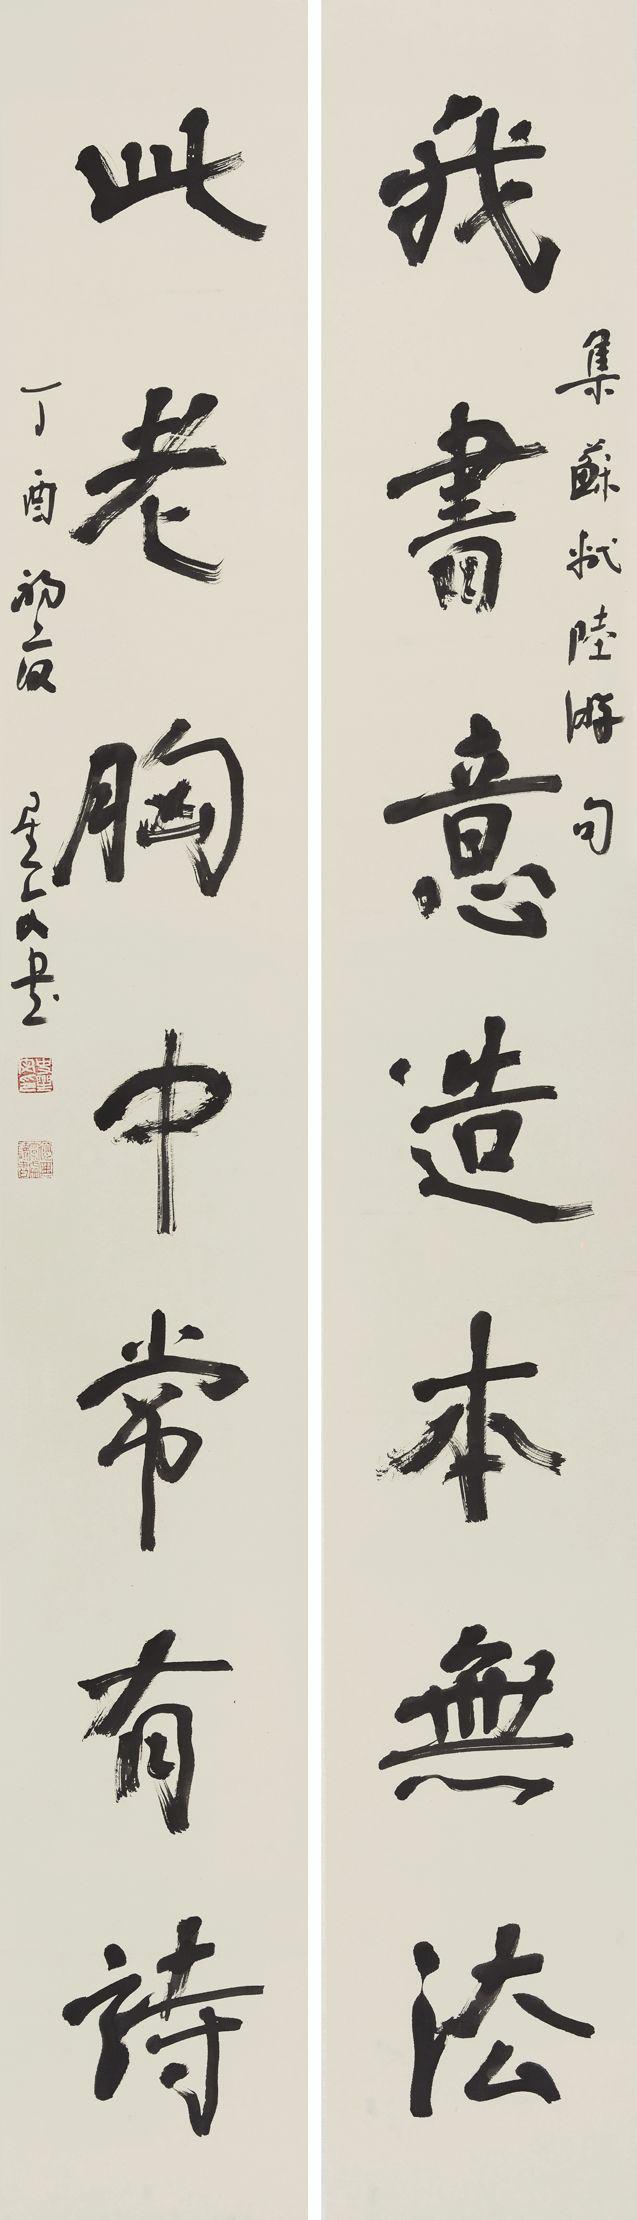 我書意造本無法
集蘇軾陸游句
此老胸中常有詩
丁酉初夏